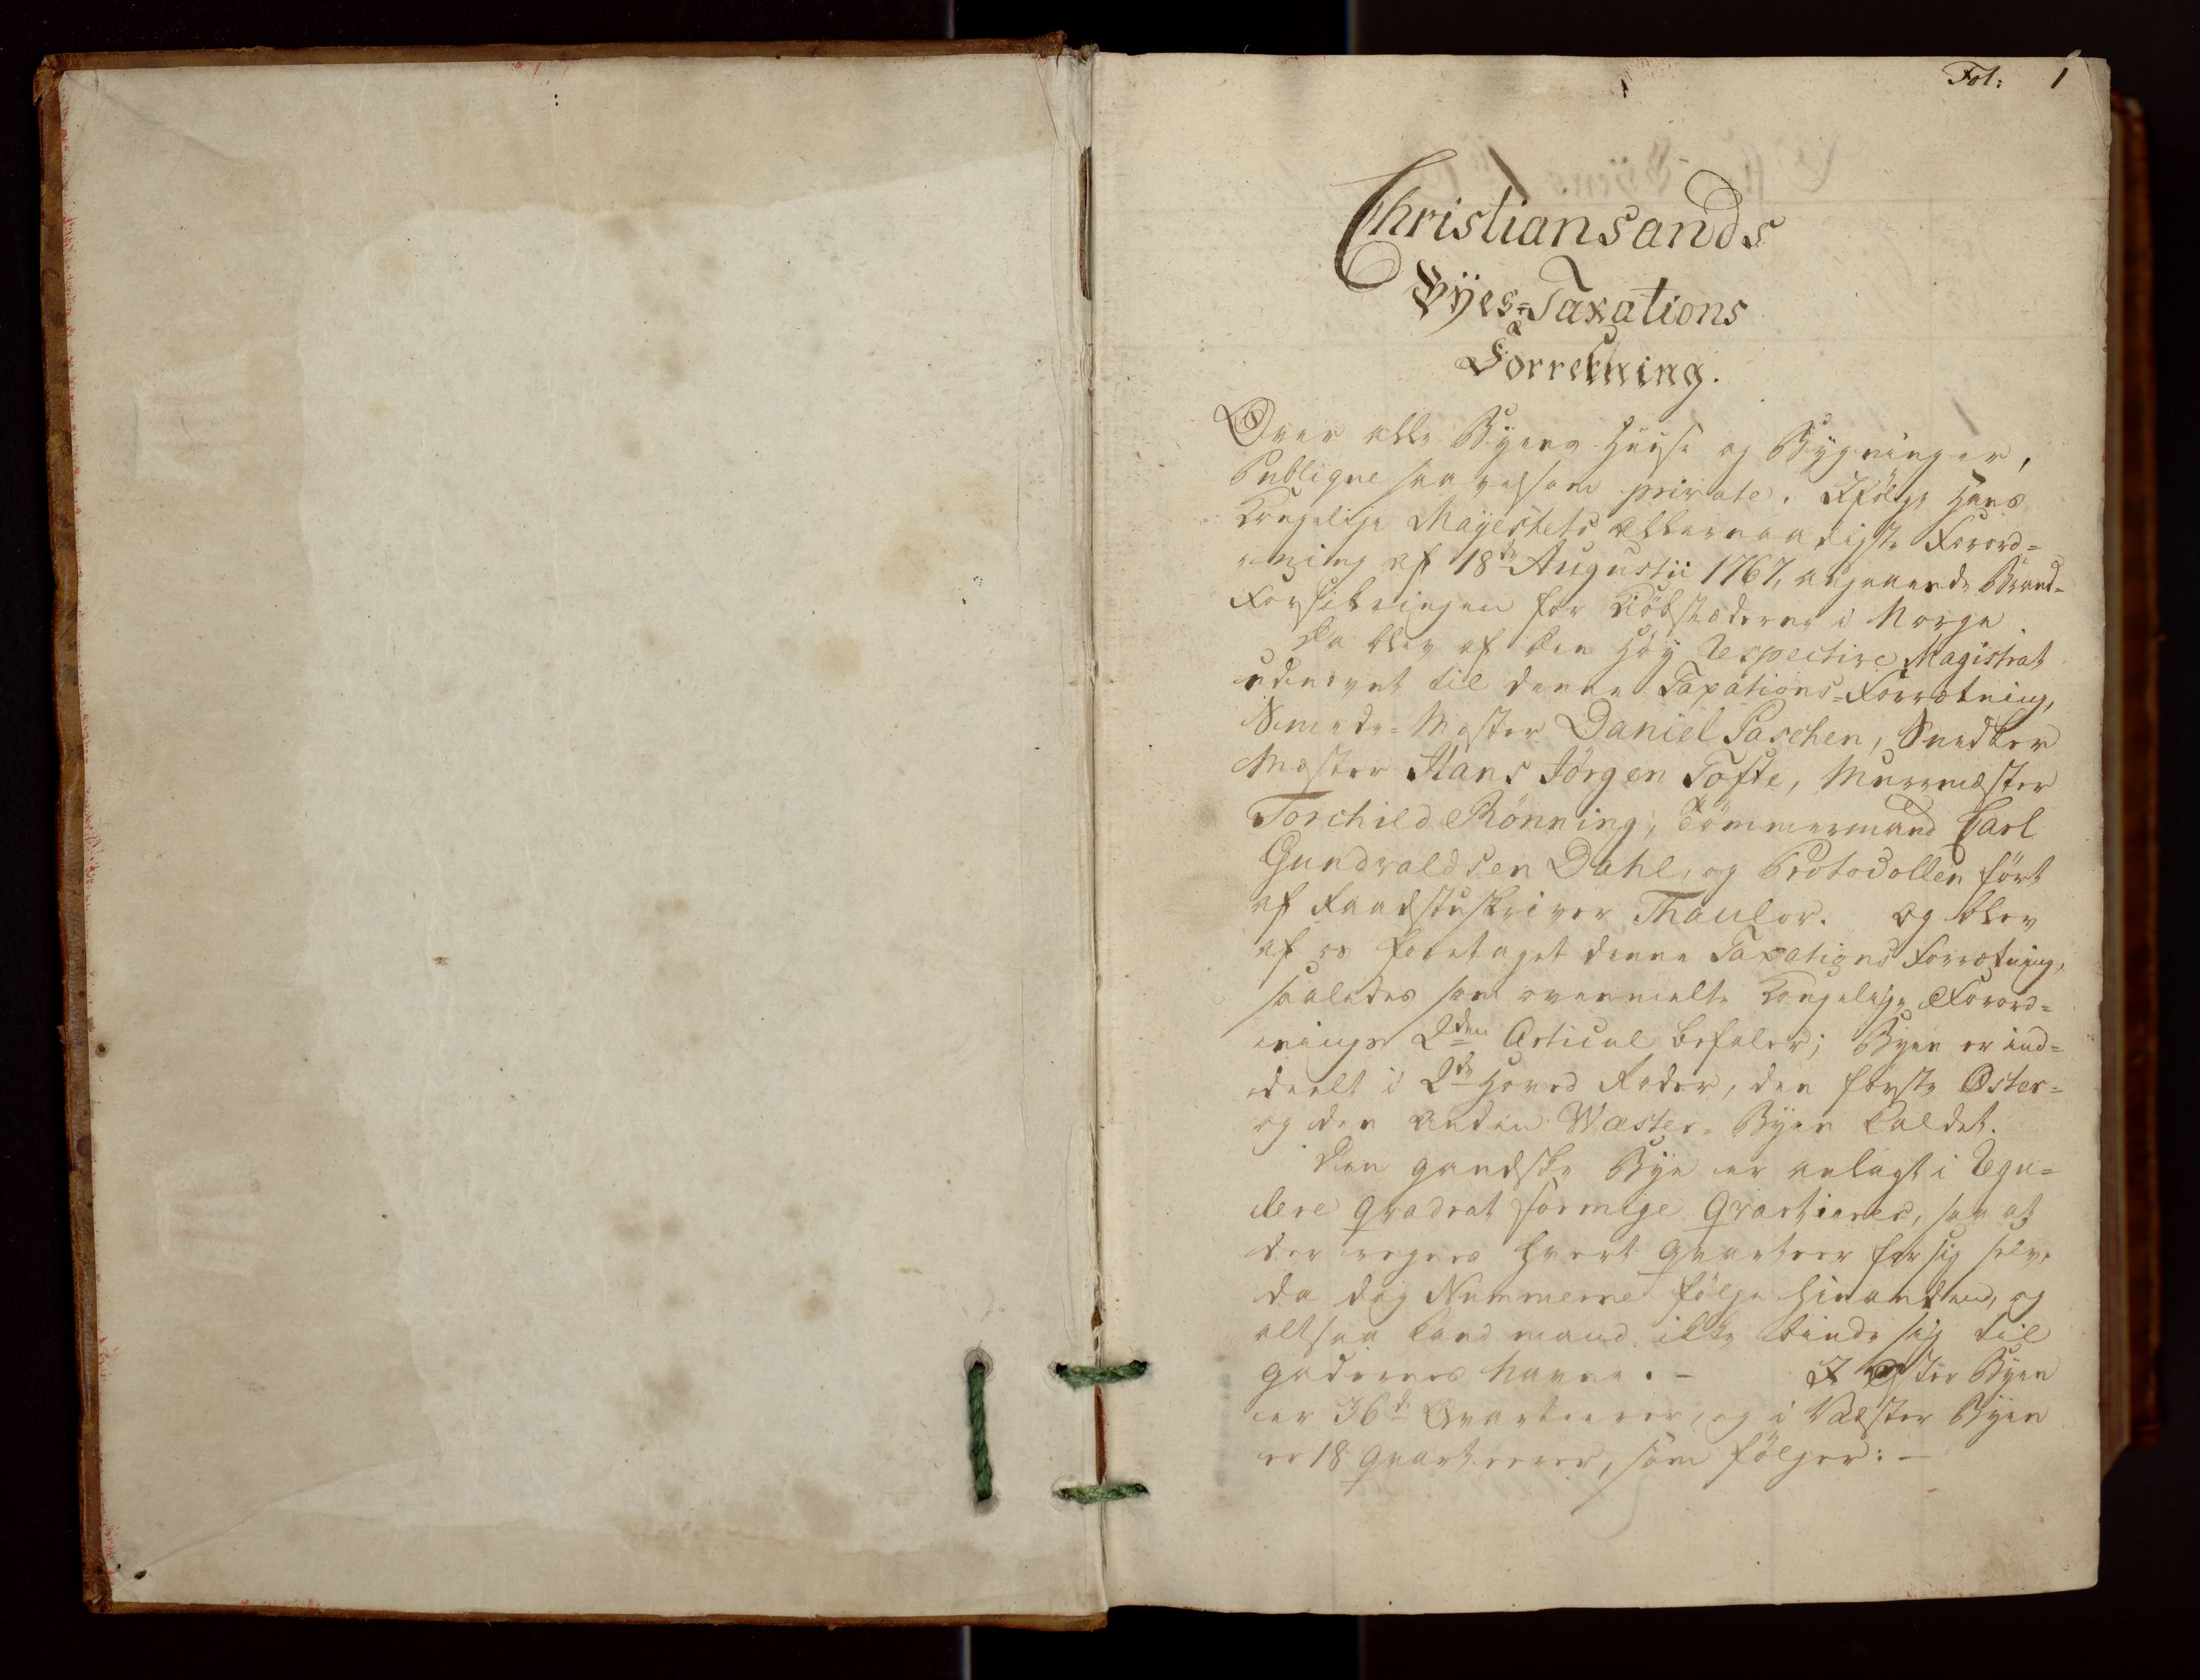 Fol: 1
Christiansands
Byes=Taxations
Forretning.
Over alle Byens Huuse og Bygninger,
Publiqve saavelsom private. Ifölge Hans
Kongelige Mayestets Allernaadigste Forord=
ning af 18de Augustii 1767, angaaende Brand=
Forsikringen for Kiöbstæderne i Norge
Da blev af den Höy Respective Magistrat
udnevnt til denne Taxations=Forretning,
Smede=Mester Daniel Paschen, Snedker
Mester Hans Jörgen Tofte, Muurmester
Torchild Rönning, Tömmermand Carl
Gundvaldsen Dahl, og Protocollen fört
af Raadstuskriver Thaulov. Og blev
af os foretaget denne Taxations Forretning,
saaledes som ovenmelte Kongelige Forord=
nings 2den Articul befaler; Byen er ind=
deelt i 2de Hoved Roder, den förste Öster=
og den anden Wæster=Byen kaldet.
Den gandske Bye er anlagt i Regu=
lere Qvadrat formige Qvartierer, saa at
der regnes hvert Qvarteer for sig selv,
da dog Nummerne fölge hinanden, og
altsaa kand mand ikke binde sig til
Gadernes Navne. – I Öster Byen
er 36de Qvarteerer, og i Væster Byen
er 18 Qvarteerer, som fölger: –